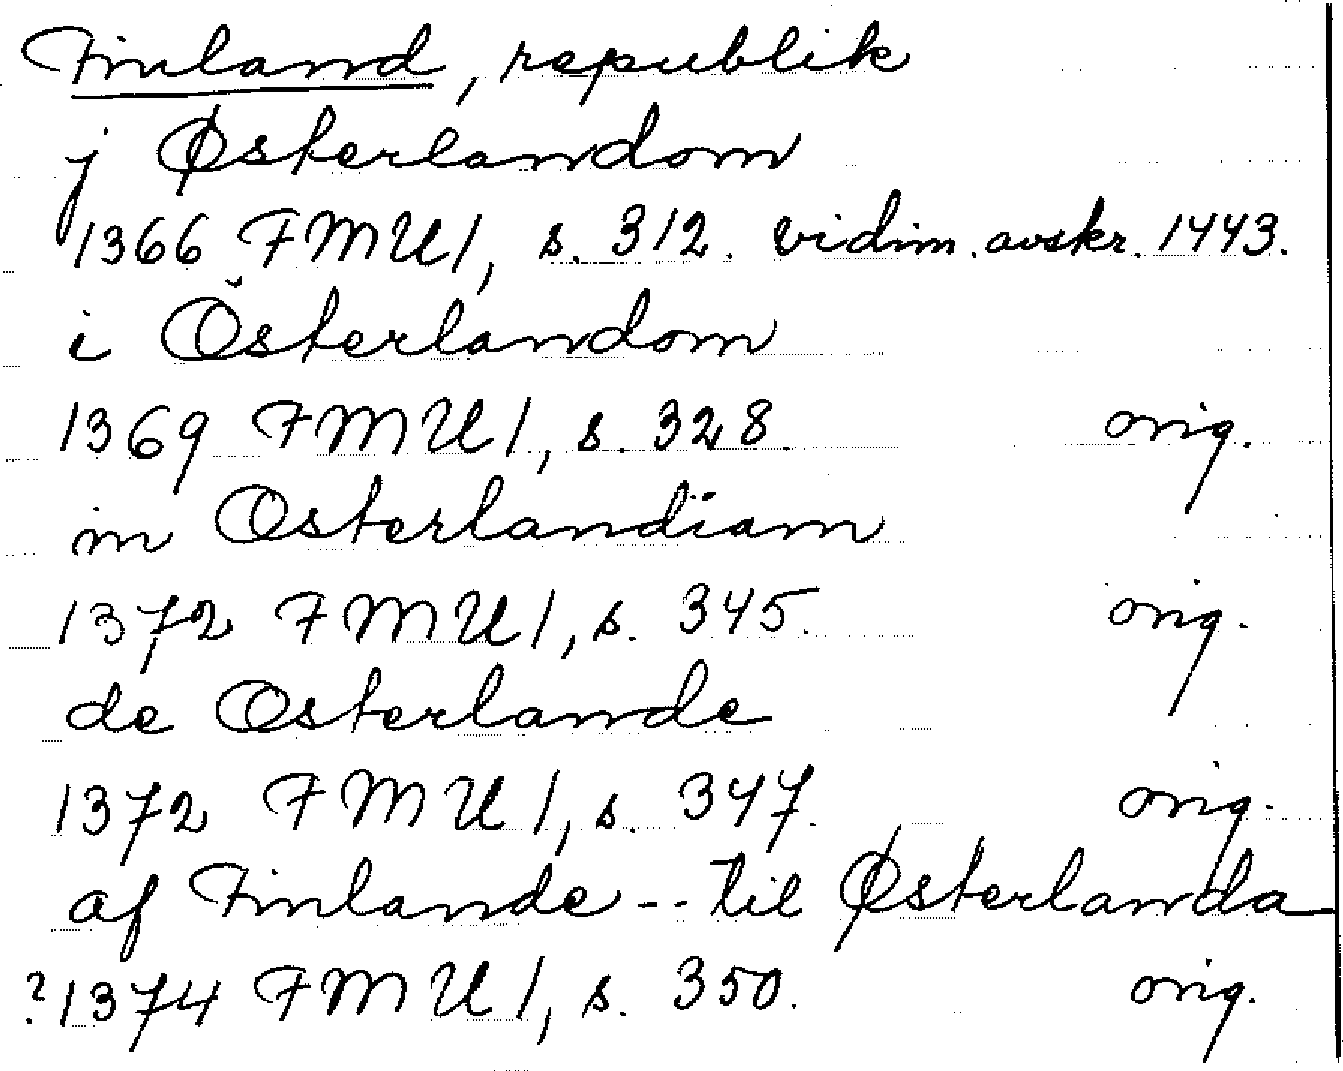 Finland, republik
j Østerlandom
1366 FMU 1, s. 312. vidim. avskr. 1443.
i Österlandom
1369 FMU 1, s. 328. orig.
in Osterlandiam
1372 FMU 1, s. 345. orig.
de Osterlande
1372 FMU 1, s. 347. orig.
af Finlande -- til Østerlanda
?1374 FMU 1, s. 350. orig.